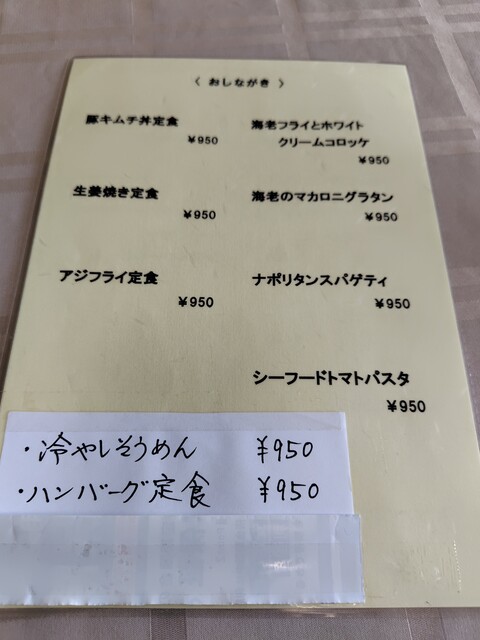 〈 おしながき 〉
豚キムチ丼定食
¥950
生姜焼き定食
¥950
アジフライ定食
¥950
海老フライとホワイト
クリームコロッケ
¥950
海老のマカロニグラタン
¥950
ナポリタンスパゲティ
¥950
シーフードトマトパスタ
¥950
・冷やしそうめん ¥950
・ハンバーグ定食 ¥950